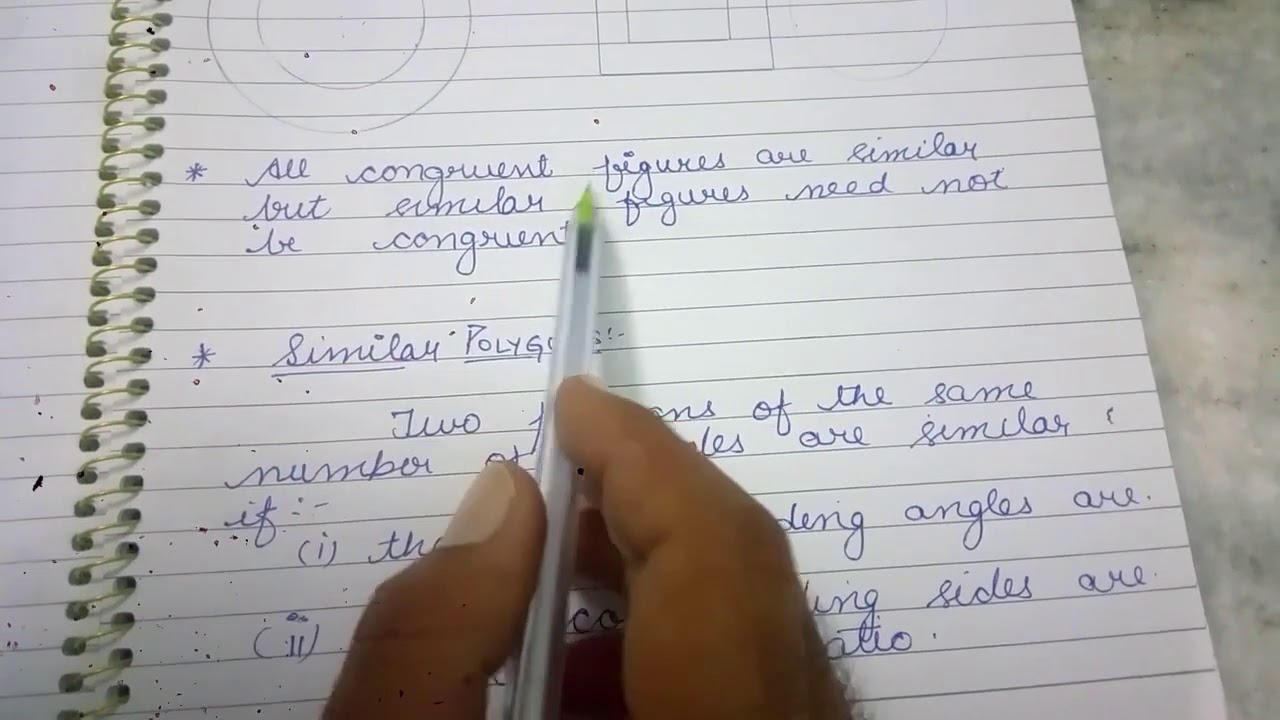 * All congruent figures are similar
but similar figures need not
be congruent
* Similar POLYGONS:-
Two of the same
number of are similar
if :-
(i) angles are.
sides are.
(ii)